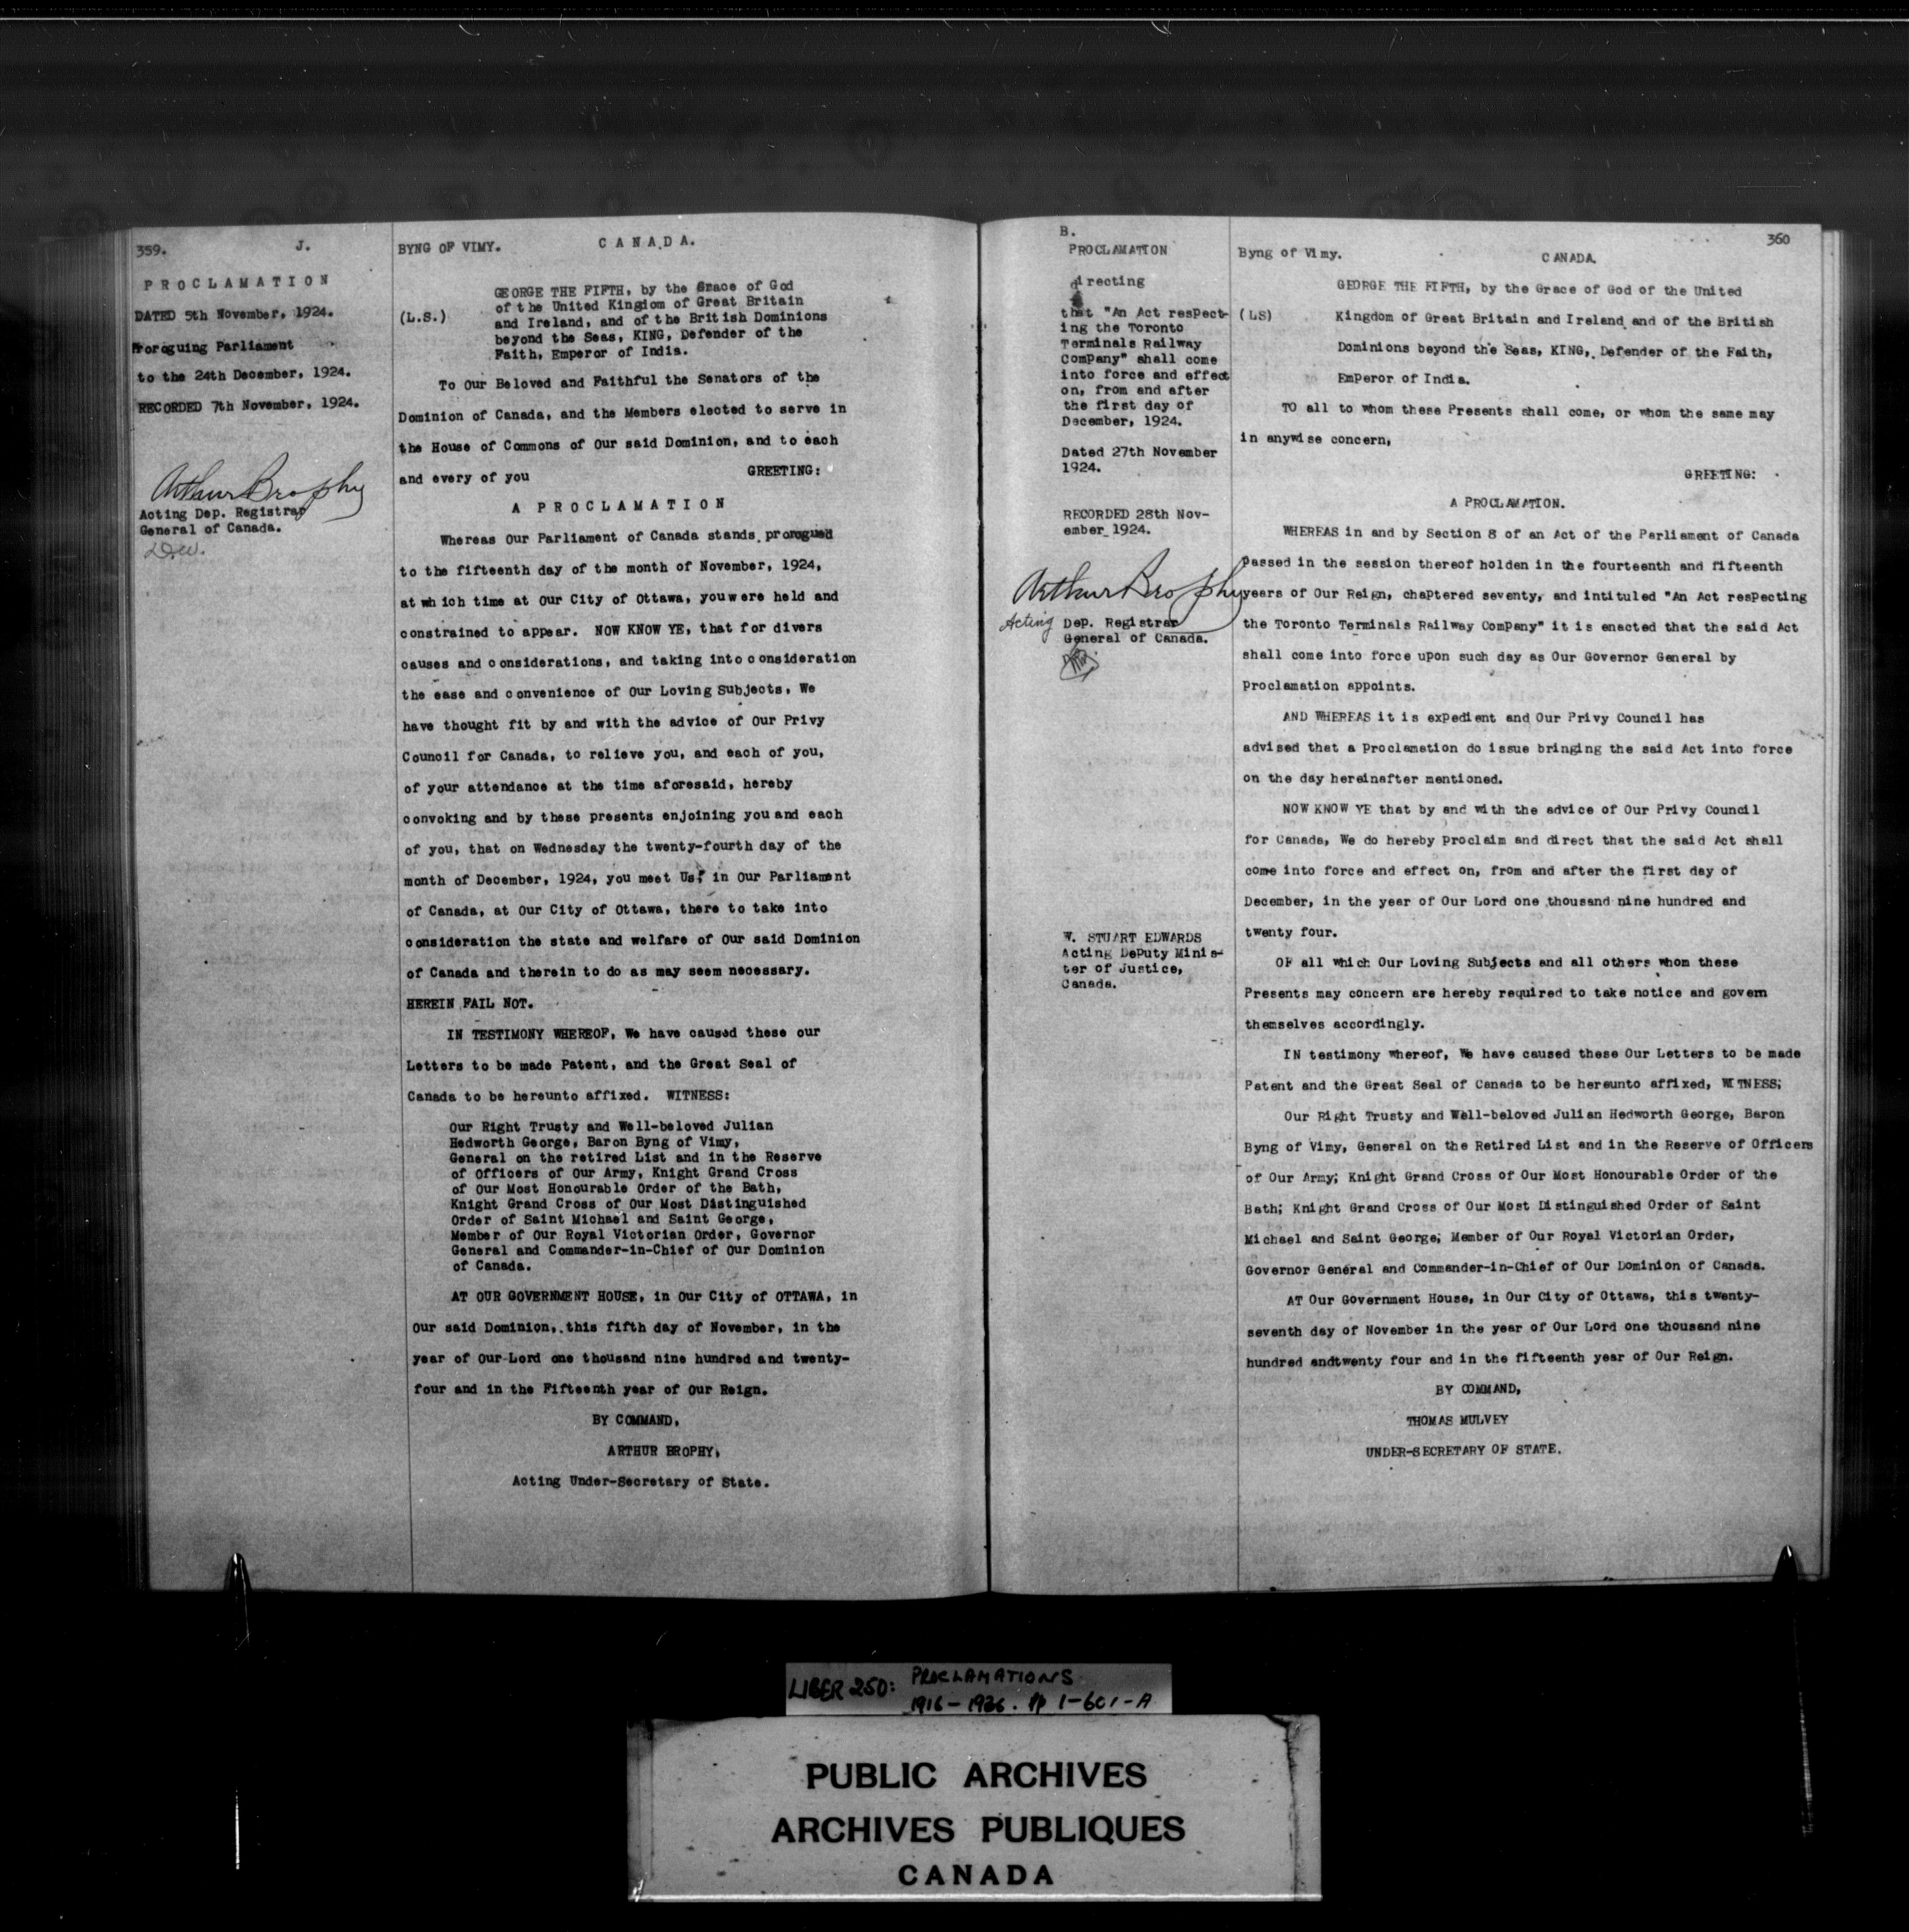 359.
J.
PROCLAMATION
DATED 5th November, 1924.
Proroguing Parliament
to the 24th December, 1924.
RECORDED 7th November, 1924.
Arthur Brophy
Acting Dep. Registrar
General of Canada.
BYNG OF VIMY.
CANADA.
(L.S.)
GEORGE THE FIFTH, by the Grace of God
of the United Kingdom of Great Britain
and Ireland, and of the British Dominions
beyond the Seas, KING, Defender of the
Faith, Emperor of India.
To Our Beloved and Faithful the Senators of the
Dominion of Canada, and the Members elected to serve in
the House of Commons of Our said Dominion, and to each
and every of you GREETING:
A PROCLAMATION
Whereas Our Parliament of Canada stands prorogued
to the fifteenth day of the month of November, 1924,
at which time at Our City of Ottawa, you were held and
constrained to appear. NOW KNOW YE, that for divers
causes and considerations, and taking into consideration
the ease and convenience of Our Loving Subjects, We
have thought fit by and with the advice of Our Privy
Council for Canada, to relieve you, and each of you,
of your attendance at the time aforesaid, hereby
convoking and by these presents enjoining you and each
of you, that on Wednesday the twenty-fourth day of the
month of December, 1924, you meet Us, in Our Parliament
of Canada, at Our City of Ottawa, there to take into
consideration the state and welfare of Our said Dominion
of Canada and therein to do as may seem necessary.
HEREIN FAIL NOT.
IN TESTIMONY WHEREOF, We have caused these our
Letters to be made Patent, and the Great Seal of
Canada to be hereunto affixed. WITNESS:
Our Right Trusty and Well-beloved Julian
Hedworth George, Baron Byng of Vimy,
General on the retired List and in the Reserve
of Officers of Our Army, Knight Grand Cross
of Our Most Honourable Order of the Bath,
Knight Grand Cross of Our Most Distinguished
Order of Saint Michael and Saint George,
Member of Our Royal Victorian Order, Governor
General and Commander-in-Chief of Our Dominion
of Canada.
AT OUR GOVERNMENT HOUSE, in Our City of OTTAWA, in
Our said Dominion, this fifth day of November, in the
year of Our Lord one thousand nine hundred and twenty-
four and in the Fifteenth year of Our Reign.
BY COMMAND,
ARTHUR BROPHY,
Acting Under-Secretary of State.
B.
PROCLAMATION
directing
that "An Act respect-
ing the Toronto
Terminals Railway
Company" shall come
into force and effect
on, from and after
the first day of
December, 1924.
Dated 27th November
1924.
RECORDED 28th Nov-
ember 1924.
Arthur Brophy
Acting Dep. Registrar
General of Canada.
W. STUART EDWARDS
Acting Deputy Minis-
ter of Justice,
Canada.
360
Byng of Vimy.
CANADA.
(LS)
GEORGE THE FIFTH, by the Grace of God of the United
Kingdom of Great Britain and Ireland and of the British
Dominions beyond the Seas, KING, Defender of the Faith,
Emperor of India.
TO all to whom these Presents shall come, or whom the same may
in anywise concern,
GREETING:
A PROCLAMATION.
WHEREAS in and by Section 8 of an Act of the Parliament of Canada
passed in the session thereof holden in the fourteenth and fifteenth
years of Our Reign, chaptered seventy, and intituled "An Act respecting
the Toronto Terminals Railway Company" it is enacted that the said Act
shall come into force upon such day as Our Governor General by
Proclamation appoints.
AND WHEREAS it is expedient and Our Privy Council has
advised that a Proclamation do issue bringing the said Act into force
on the day hereinafter mentioned.
NOW KNOW YE that by and with the advice of Our Privy Council
for Canada, We do hereby Proclaim and direct that the said Act shall
come into force and effect on, from and after the first day of
December, in the year of Our Lord one thousand nine hundred and
twenty four.
OF all which Our Loving Subjects and all others whom these
Presents may concern are hereby required to take notice and govern
themselves accordingly.
IN testimony whereof, We have caused these Our Letters to be made
Patent and the Great Seal of Canada to be hereunto affixed, WITNESS;
Our Right Trusty and Well-beloved Julian Hedworth George, Baron
Byng of Vimy, General on the Retired List and in the Reserve of Officers
of Our Army; Knight Grand Cross of Our Most Honourable Order of the
Bath; Knight Grand Cross of Our Most Distinguished Order of Saint
Michael and Saint George; Member of Our Royal Victorian Order,
Governor General and Commander-in-Chief of Our Dominion of Canada.
AT Our Government House, in Our City of Ottawa, this twenty-
seventh day of November in the year of Our Lord one thousand nine
hundred andtwenty four and in the fifteenth year of Our Reign.
BY COMMAND,
THOMAS MULVEY
UNDER-SECRETARY OF STATE.
LIBER 250: PROCLAMATIONS
1916-1926. pp 1-601-A
PUBLIC ARCHIVES
ARCHIVES PUBLIQUES
CANADA